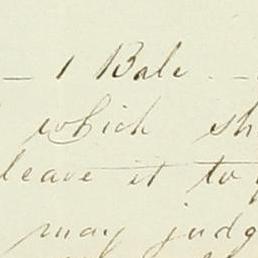 — 1 Bale. —
which sh
leave it to y
may judg